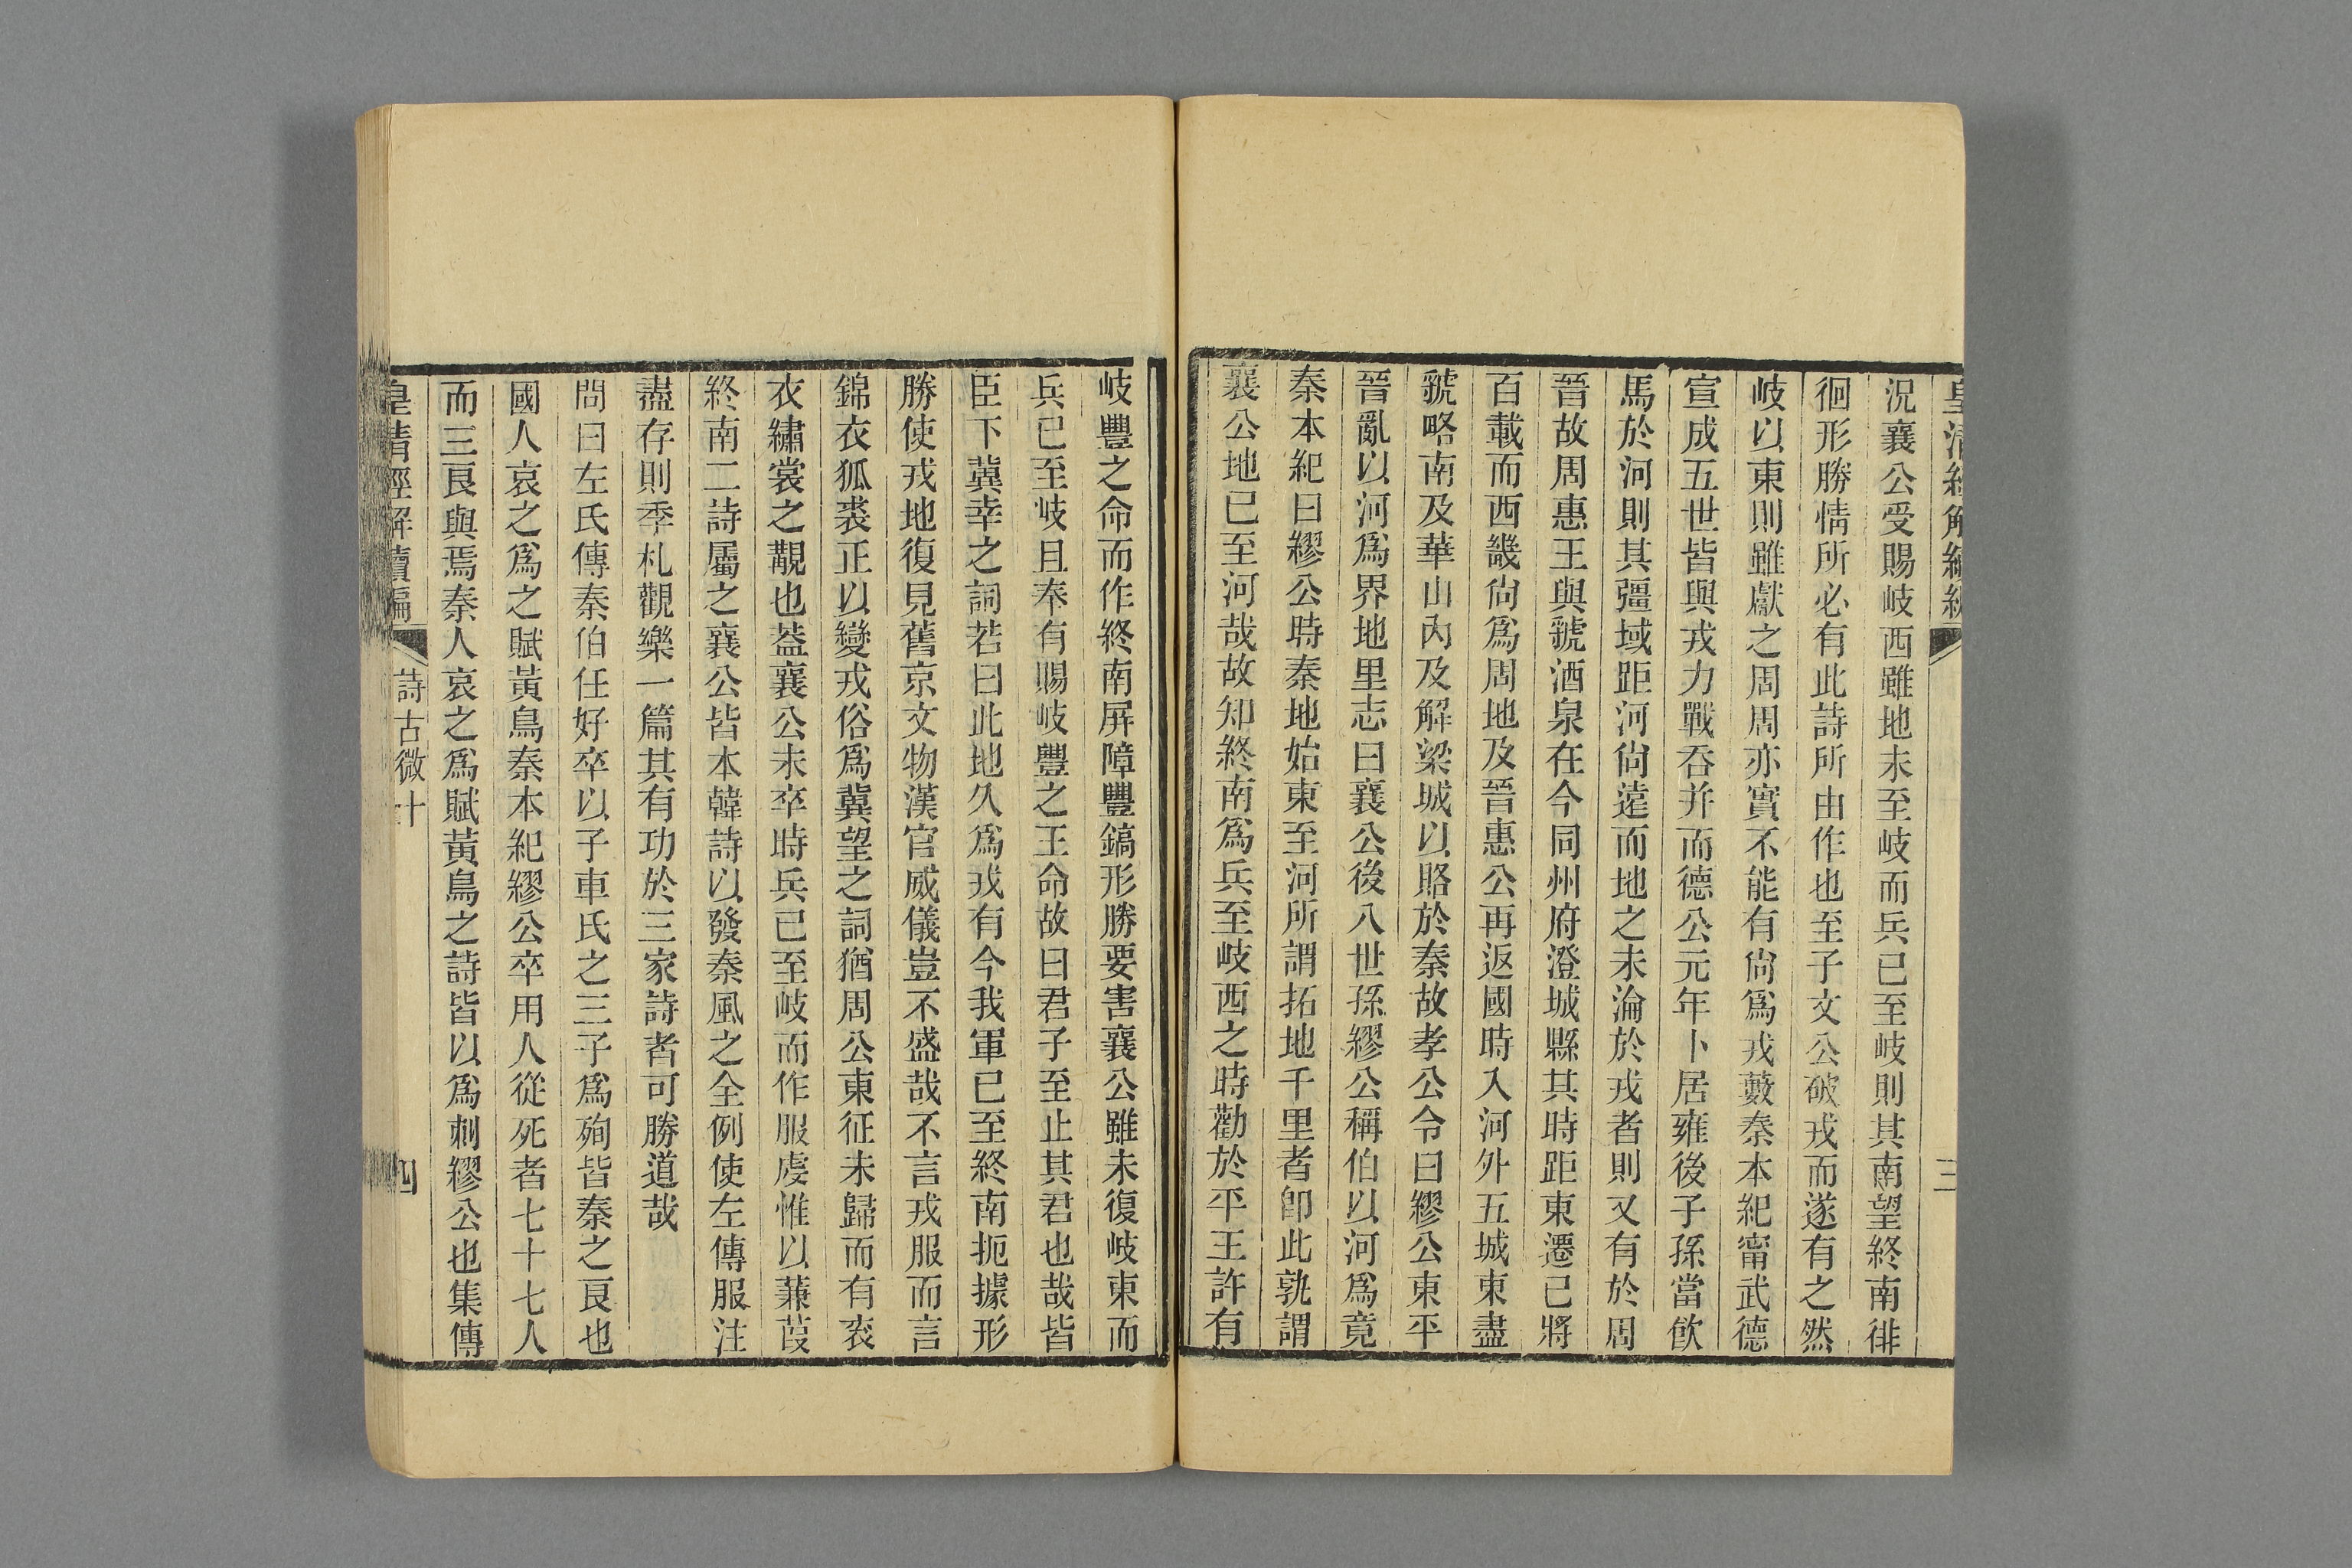 皇清經解續編
三
況襄公受賜岐西雖地未至岐而兵已至岐則其南望終南徘
徊形勝情所必有此詩所由作也至子文公破戎而遂有之然
岐以東則雖獻之周周亦實不能有尙爲戎藪秦本紀甯武德
宣成五世皆與戎力戰吞并而德公元年卜居雍後子孫當飮
馬於河則其疆域距河尙遠而地之未淪於戎者則又有於周
晉故周惠王與虢酒泉在今同州府澄城縣其時距東遷已將
百載而西畿尙爲周地及晉惠公再返國時入河外五城東盡
虢略南及華山內及解梁城以賂於秦故孝公令曰繆公東平
晉亂以河爲界地里志曰襄公後八世孫繆公稱伯以河爲竟
秦本紀曰繆公時秦地始東至河所謂拓地千里者卽此孰謂
襄公地已至河哉故知終南爲兵至岐西之時勸於平王許有
岐豐之命而作終南屏障豐鎬形勝要害襄公雖未復岐東而
兵已至岐且奉有賜岐豐之王命故曰君子至止其君也哉皆
臣下冀幸之詞若曰此地久爲戎有今我軍已至終南扼據形
勝使戎地復見舊京文物漢官威儀豈不盛哉不言戎服而言
錦衣狐裘正以變戎俗爲冀望之詞猶周公東征未歸而有衮
衣繡裳之覯也葢襄公未卒時兵已至岐而作服虔惟以蒹葭
終南二詩屬之襄公皆本韓詩以發秦風之全例使左傳服注
盡存則季札觀樂一篇其有功於三家詩者可勝道哉
問曰左氏傳秦伯任好卒以子車氏之三子爲殉皆秦之良也
國人哀之爲之賦黃鳥秦本紀繆公卒用人從死者七十七人
而三良與焉秦人哀之爲賦黃鳥之詩皆以爲刺繆公也集傳
皇清經解續編
詩古微十
四